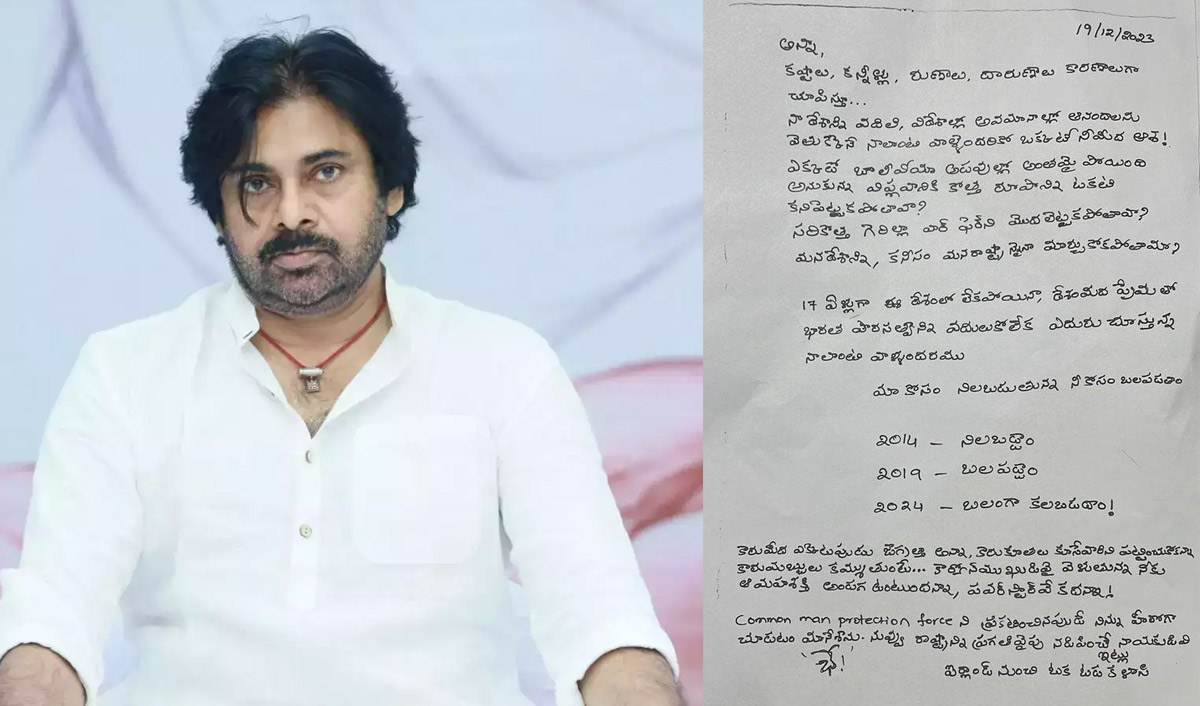 19/12/2023
అన్నా,
కష్టాలు, కన్నీళ్లు, రుణాలు, దారుణాలు కారణాలుగా
చూపిస్తూ...
నా దేశాన్ని వదిలి, విదేశాల్లో అవమానాల్లో ఆనందాలను
వెతుక్కొనే నాలాంటి వాళ్ళెందరికో ఒక్కటే నీమీద ఆశ!
ఎక్కడో బొలీవియా అడవుల్లో అంతమై పోయింది
అనుకున్న విప్లవానికి కొత్త రూపాన్ని ఒకటి
కనిపెట్టకపోతావా?
సరికొత్త గెరిల్లా వార్ ఫేర్‌ని మొదలెట్టకపోతావా?
మనదేశాన్ని, కనీసం మనరాష్ట్రాన్నైనా మార్చుకోకపోతామా?
17 ఏళ్లుగా ఈ దేశంలో లేకపోయినా, దేశంమీద ప్రేమతో
భారత పౌరసత్వాన్ని వదులుకోలేక ఎదురు చూస్తున్న
నాలాంటి వాళ్ళందరము
మా కోసం నిలబడుతున్న నీకోసం బలపడతాం
2014 – నిలబడ్డాం
2019 – బలపడ్డాం
2024 – బలంగా కలబడదాం!
కారుమీద ఎక్కేటపుడు జాగ్రత్త అన్నా, కారుకూతలు కూసేవారిని పట్టించుకోకన్నా
కారుమబ్బులు కమ్ముతుంటే... వెళుతున్న నీకు
ఆ మహాశక్తి అండగ ఉంటుందన్నా, పవర్ స్టార్‌వే కదన్నా!
Common man protection force ని ప్రకటించినపుడే నిన్ను హీరోగా
చూడటం మానేశాను. నువ్వు రాష్ట్రాన్ని ప్రగతివైపు నడిపించే నాయకుడివి
ఇట్లు
ఐర్లాండ్ నుంచి ఒక ఓడ కళాసి